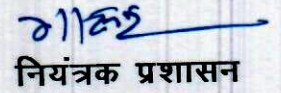 नियंत्रक प्रशासन